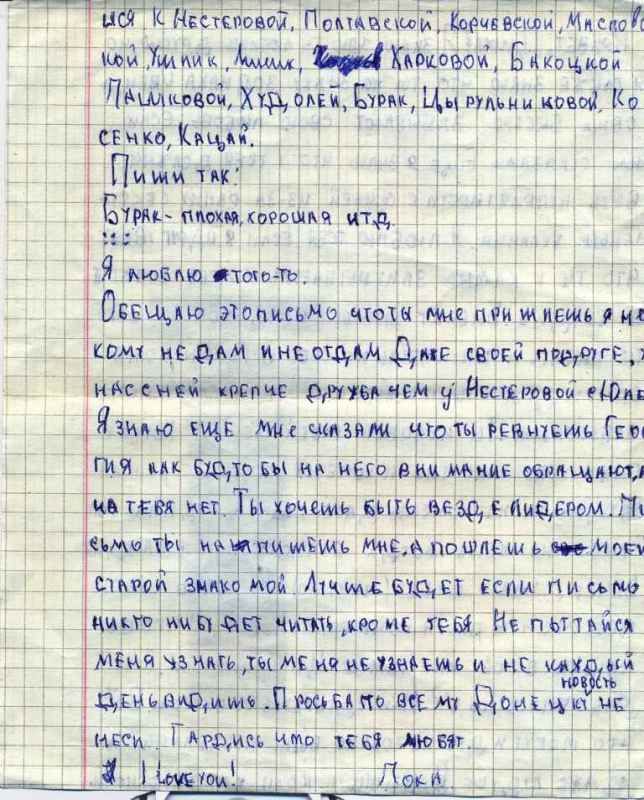 ИСЯ К НЕСТЕРОВОЙ, ПОЛТАВСКОЙ, КОРЧЕВСКОЙ, МАСЛОВС
КОЙ, УШПИК, ХАРКОВОЙ, БАКОЦКОЙ
ПАШКОВОЙ, ХУДОЛЕЙ, БУРАК, ЦЫРУЛЬНИКОВОЙ, КО
СЕНКО, КАЦАЙ.
ПИШИ ТАК:
БУРАК - ПЛОХАЯ, ХОРОШАЯ ИТД
Я ЛЮБЛЮ ТОГО-ТО.
ОБЕЩАЮ ЭТО ПИСЬМО ЧТО ТЫ МНЕ ПРИШЛЕШЬ Я НЕ
КОМУ НЕ ДАМ И НЕ ОТДАМ ДАЖЕ СВОЕЙ ПОДРУГЕ, У
НАС С НЕЙ КРЕПЧЕ ДРУЖБА ЧЕМ У НЕСТЕРОВОЙ
Я ЗНАЮ ЕЩЕ МНЕ СКАЗАЛИ ЧТО ТЫ РЕВНУЕШЬ ГЕО
ГИЯ КАК БУДТО БЫ НА НЕГО ВНИМАНИЕ ОБРАЩАЮТ, А
НА ТЕБЯ НЕТ. ТЫ ХОЧЕШЬ БЫТЬ ВЕЗДЕ ЛИДЕРОМ. ПИ
СЬМО ТЫ НАПИШЕШЬ МНЕ, А ПОШЛЕШЬ МОЕЙ
СТАРОЙ ЗНАКОМОЙ. ЛУЧШЕ БУДЕТ ЕСЛИ ПИСЬМО
НИКТО НИ БУДЕТ ЧИТАТЬ, КРОМЕ ТЕБЯ. НЕ ПЫТТАЙСЯ
МЕНЯ УЗНАТЬ, ТЫ МЕНЯ НЕ УЗНАЕШЬ И НЕ КАЖДЫЙ
ДЕНЬ ВИДИШЬ. ПРОСЬБА ПО ВСЕМУ ДОНЕЦКУ НОВОСТЬ НЕ
НЕСИ. ГАРДИСЬ ЧТО ТЕБЯ ЛЮБЯТ.
I LOVE YOU! ПОКА